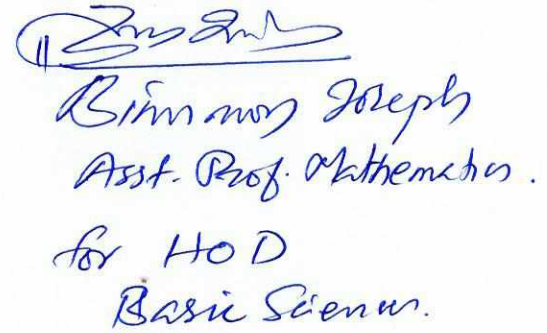 Binumon Joseph
Asst. Prof. Mathematics.
for HOD
Basic Sciences.